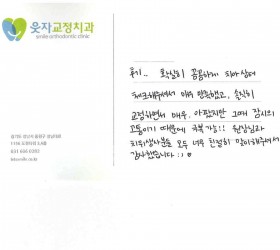 웃자교정치과
smile orthodontic clinic
후기.. 확실히 꼼꼼하게 치아상태
체크해주셔서 매우 만족했고, 솔직히
교정하면서 매우 아팠지만 그때 잠시의
고통이기 때문에 극복 가능!! 원장님과
치위생사분들 모두 너무 친절히 맞이해주셔서
감사했습니다 :)